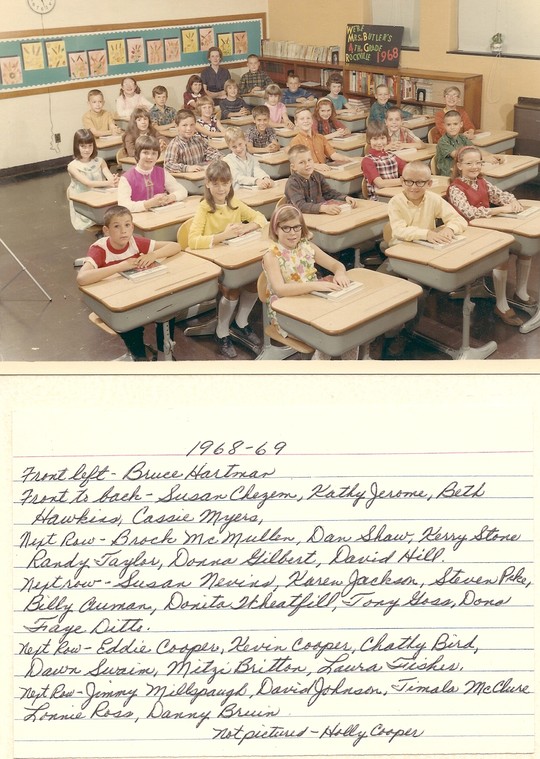 WERE
MRS. BUTLER'S
4TH. GRADE
ROCKVILLE
1968
1968-69
Front left - Bruce Hartman
Front to back - Susan Chezem, Kathy Jerome, Beth
Hawkins, Cassie Myers,
Next Row - Brock McMullen, Dan Shaw, Kerry Stone
Randy Taylor, Donna Gilbert, David Hill.
Next row - Susan Nevins, Karen Jackson, Steven Pike,
Billy Auman, Donita Wheatfill, Tony Goss, Dona
Faye Ditto.
Next Row - Eddie Cooper, Kevin Cooper, Chathy Bird,
Dawn Swaim, Mitzi Britton, Laura Fisher.
Next Row - Jimmy Millspaugh, David Johnson, Timala McClure
Lonnie Ross, Danny Bruin
Not pictured - Holly Cooper